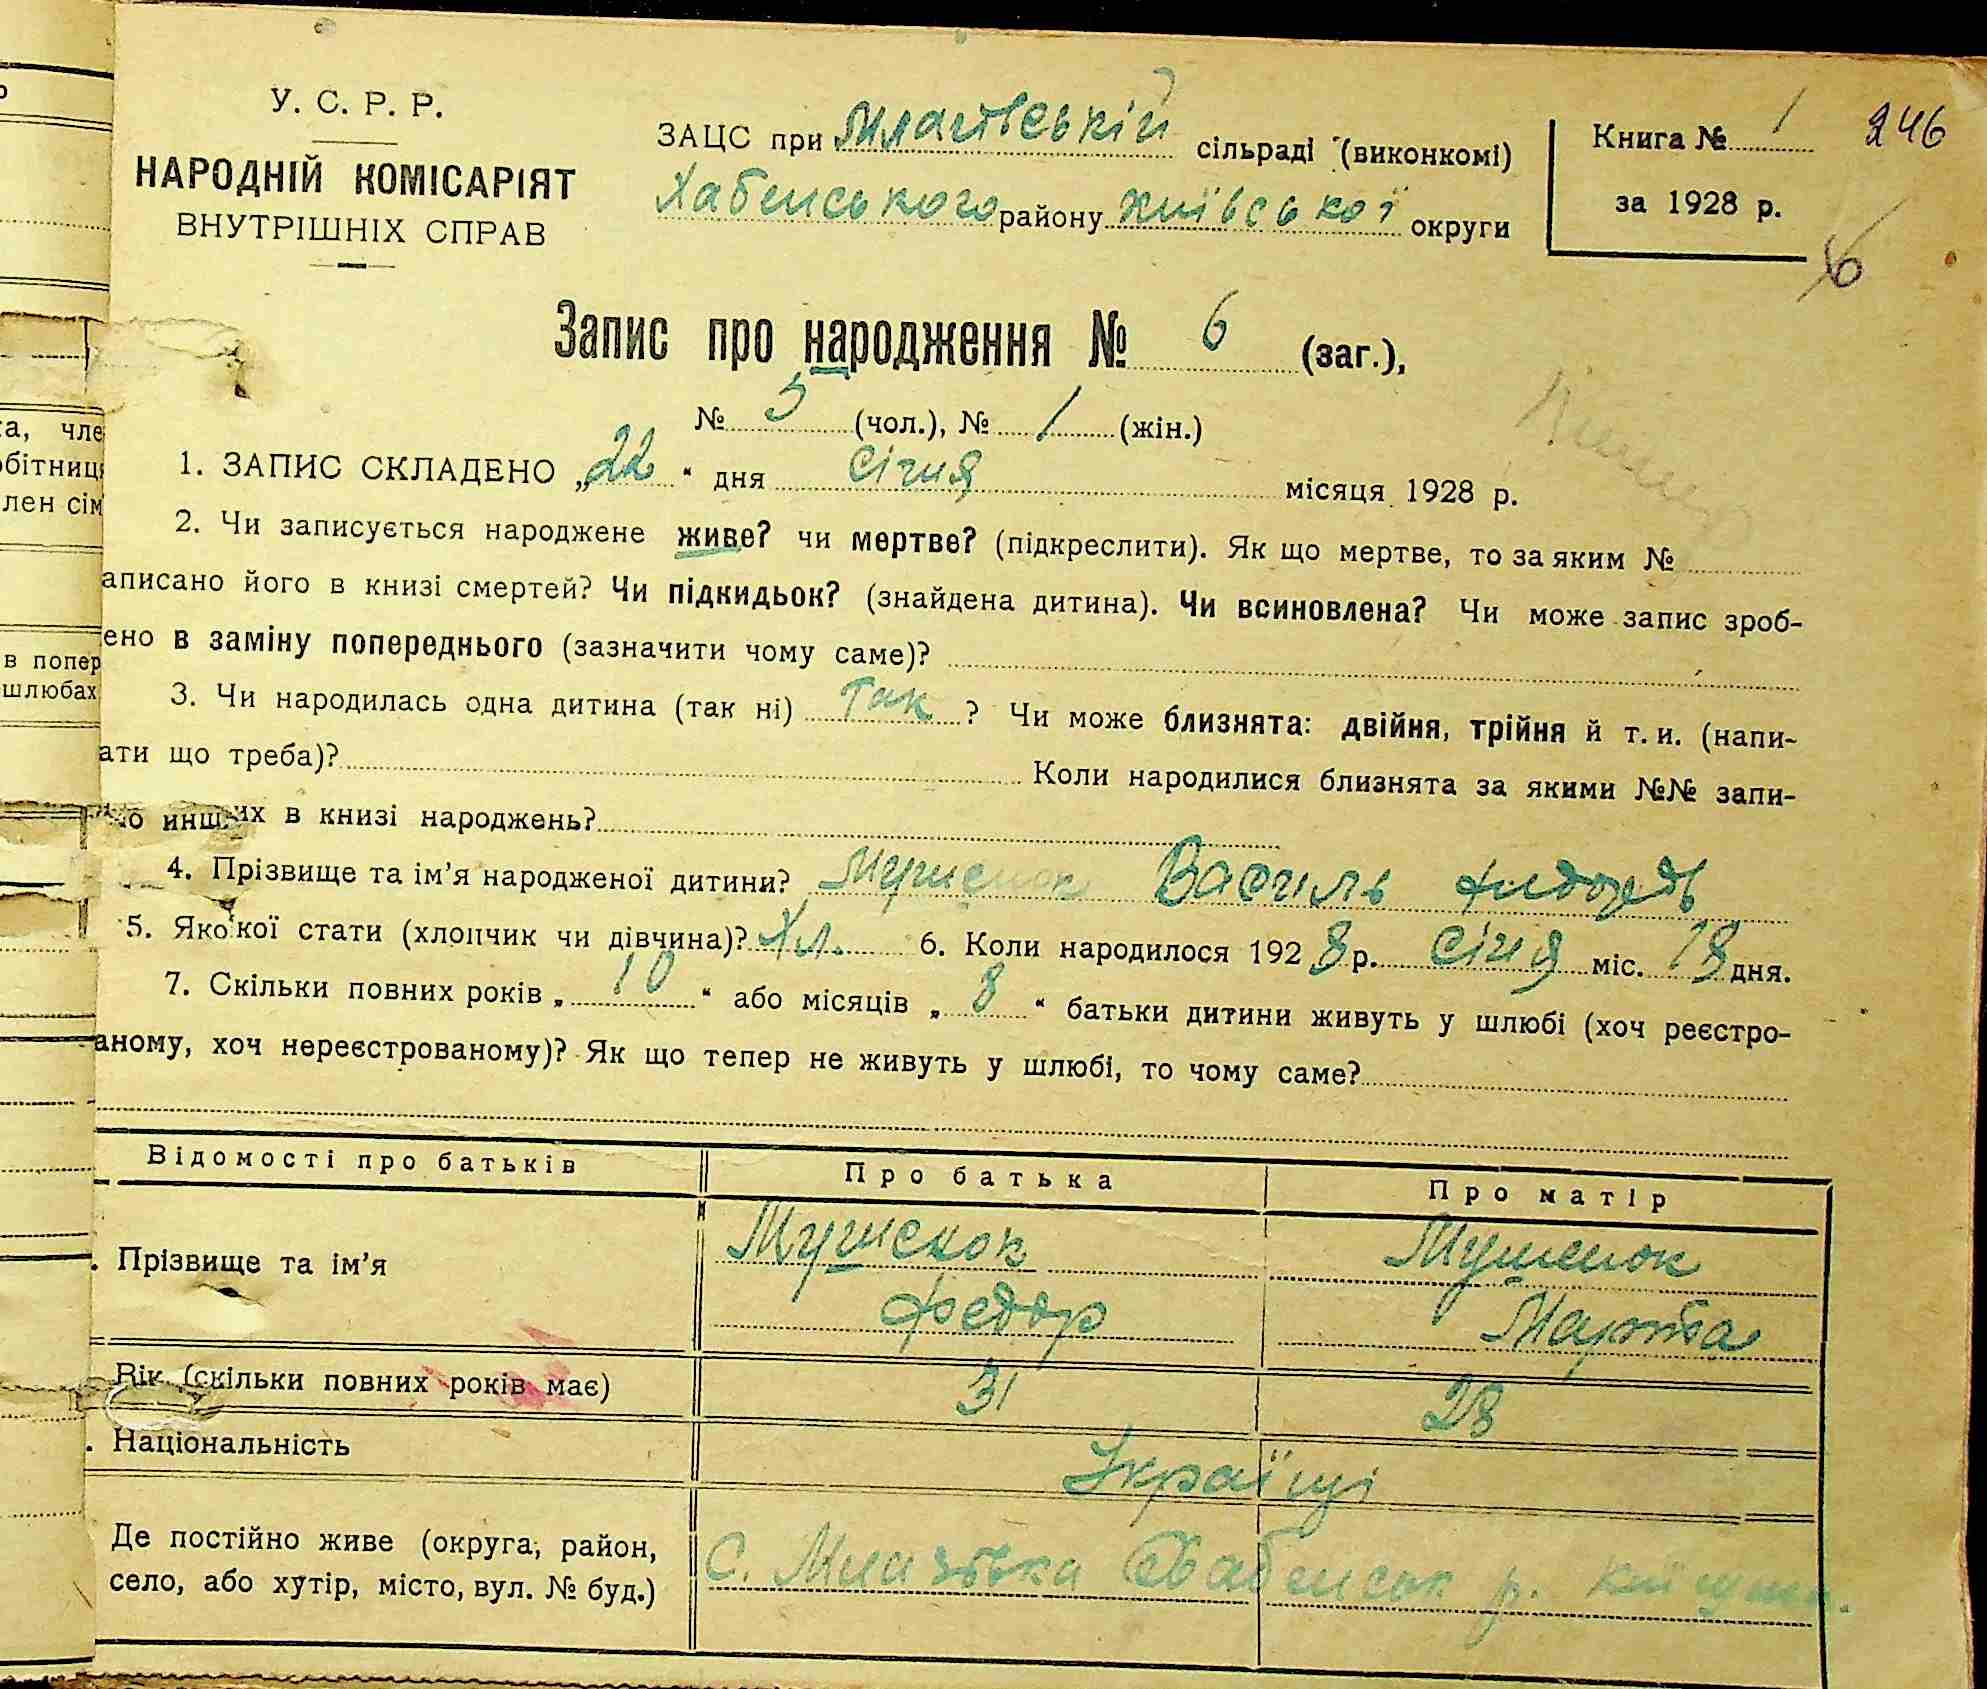 У. С. Р. Р.
НАРОДНІЙ КОМІСАРІЯТ
ВНУТРІШНІХ СПРАВ
ЗАЦС при сільраді (виконкомі)
Хабенського району Київської округи
Книга № 1 246
за 1928 р.
6
Запис про народження № 6 (заг.),
№ 5 (чол.), № 1 (жін.)
1. ЗАПИС СКЛАДЕНО „22“ дня Січня місяця 1928 р.
2. Чи записується народжене живе? чи мертве? (підкреслити). Як що мертве, то за яким №
аписано його в книзі смертей? Чи підкидьок? (знайдена дитина). Чи всиновлена? Чи може запис зроб-
ено в заміну попереднього (зазначити чому саме)?
3. Чи народилась одна дитина (так ні) Так ? Чи може близнята: двійня, трійня й т. и. (напи-
ати що треба)? Коли народилися близнята за якими №№ запи-
о инших в книзі народжень?
4. Прізвище та ім’я народженої дитини? Мушенок Василь
5. Якої стати (хлопчик чи дівчина)? Хл. 6. Коли народилося 1928 р. Січня міс. 18 дня.
7. Скільки повних років „10“ або місяців „8“ батьки дитини живуть у шлюбі (хоч реєстро-
аному, хоч нереєстрованому)? Як що тепер не живуть у шлюбі, то чому саме?
Відомості про батьків Про батька Про матір
. Прізвище та ім’я Мушенок Мушенок
Федор Марта
Вік (скільки повних років має) 31 28
. Національність Українці
Де постійно живе (округа, район,
село, або хутір, місто, вул. № буд.) С. Хабенськ р.
ка, чле
обітниц
лен сім
в попер
шлюбах